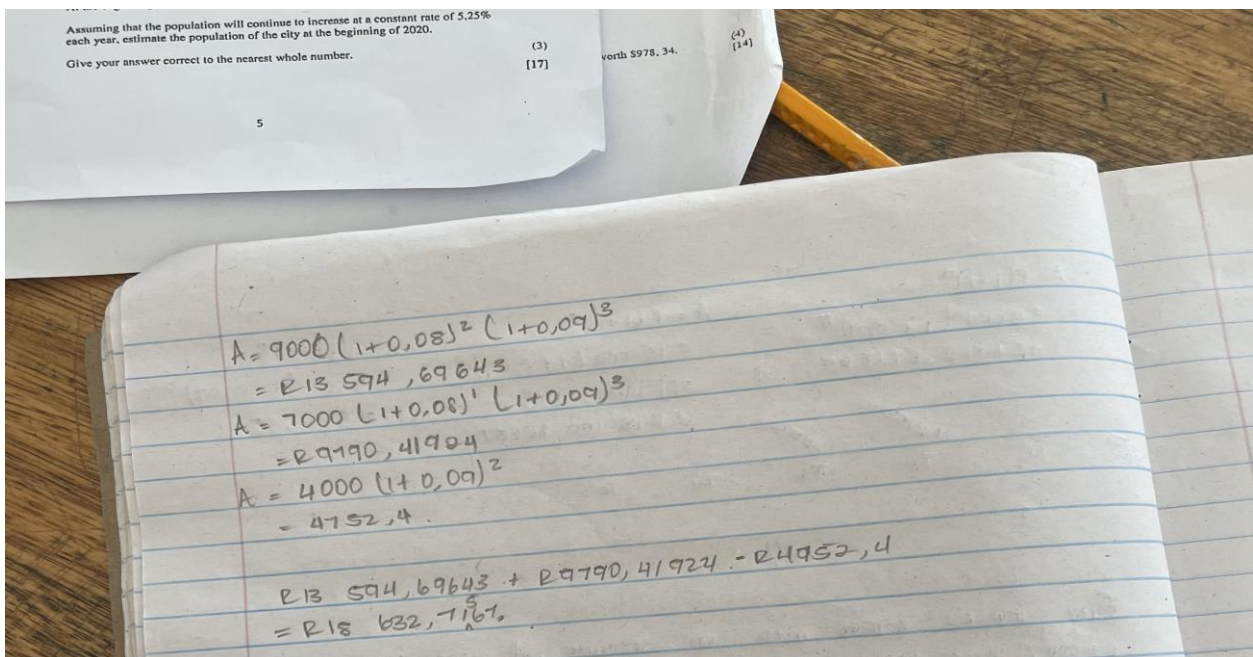 Assuming that the population will continue to increase at a constant rate of 5.25%
each year, estimate the population of the city at the beginning of 2020.
Give your answer correct to the nearest whole number.
(3)
[17]
5
worth $978, 34.
(4)
[14]
A = 9000 (1+0,08)² (1+0,09)³
= R13 594,69643
A = 7000 (1+0,08)¹ (1+0,09)³
= R9790,41904
A = 4000 (1+0,09)²
= 4752,4.
R13 594,69643 + R9790,41924 - R4952,4
= R18 632,71567.